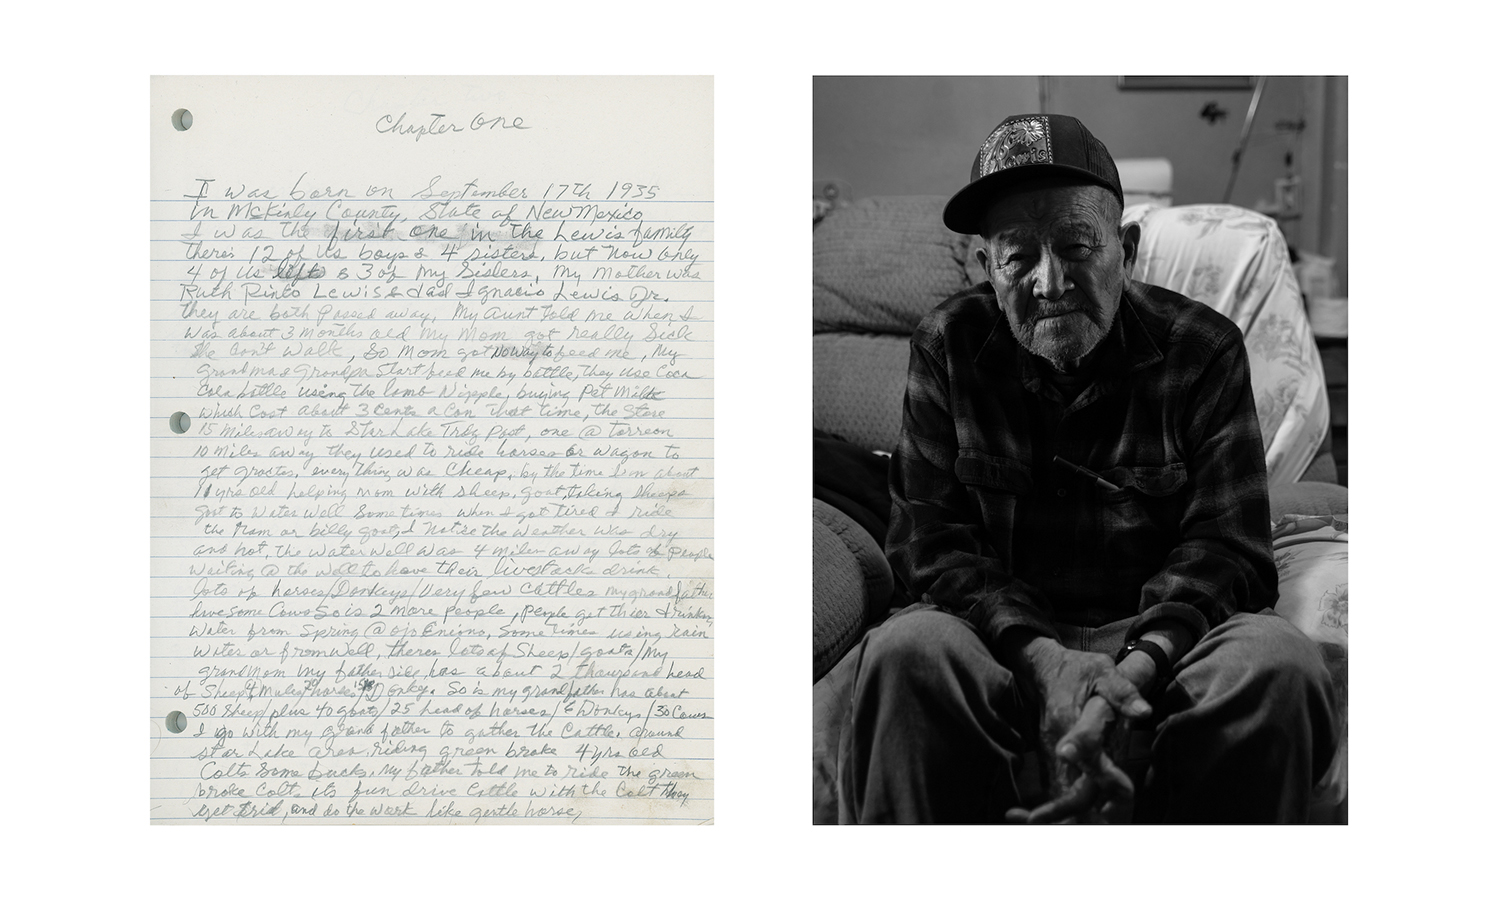 Chapter One
I was born on September 17th 1935
in McKinly County, State of New Mexico
I was the first one in the Lewis family
there's 12 of us boys & 4 sisters, but now only
4 of us left & 3 of my Sisters, My Mother was
Ruth Pinto Lewis & dad Ignacio Lewis Dr.
they are both passed away. My Aunt told me when I
was about 3 months old my Mom got really Sick
She Can't walk, So Mom got No way to feed me, My
grandma & Grandpa Start feed me by bottle, they use Coca
Cola bottle using the lamb Nipple, buying Pet Milk
which Cost about 3 Cents a Can that time, the Store
15 Miles away to Star Lake Trdg Post, one @ torreon
10 Miles away they used to ride horses or wagon to
get , every thing was Cheap, by the time I'm about
11 yrs old helping mom with sheep, goat, taking Sheeps
goat to water well Sometimes when I got tired I ride
the Ram or billy goat, I Notise the weather was dry
and hot, the water well was 4 miles away lots of People
waiting @ the well to have their livestocks drink.
lots of horses/Donkeys/Very few Cattles my grand
have some Cows So is 2 More people, People get thier
water from Spring @ ojo , Some times using rain
water or from well, theres lots of Sheep/goats/My
grandMom my father side has about 2 thousand head
of Sheep 4 Mules 20 horses 15 Donkey. So is my grandfather has about
500 Sheep plus 40 goats/25 head of horses/6 Donkys/30 Cows
I go with my grand father to gather the Cattle, around
star Lake area, riding green broke 4 yrs old
Colts Some bucks, my father told me to ride the green
broke Colts its fun drive Cattle with the Colt they
get trid, and do the work like gentle horse,
Lewis